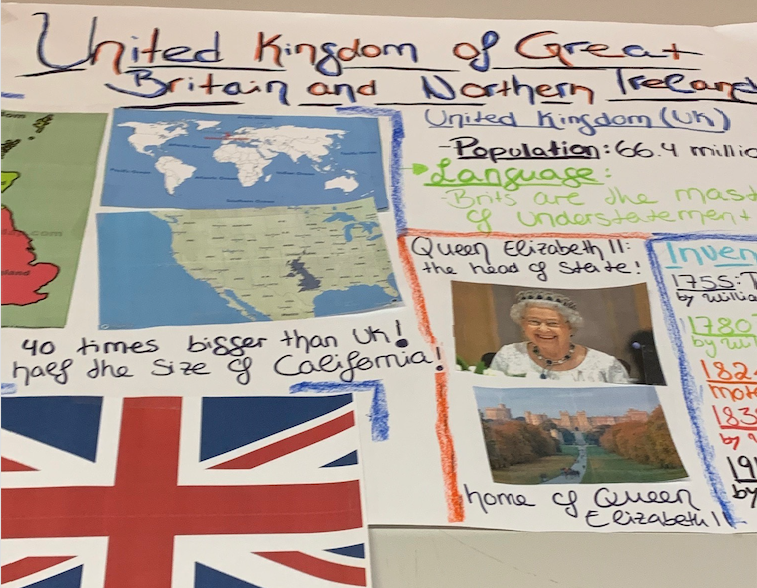 United Kingdom of Great
Britain and Northern Ireland
United Kingdom (UK)
-Population: 66.4 millio
Language:
-Brits are the mast
of understatement
40 times bigger than UK!
half the size of California!
Queen Elizabeth II:
the head of State!
home of Queen
Elizabeth II
Inven
1755: T
by Willia
1780
by Wi
182
mot
183
by
19
by